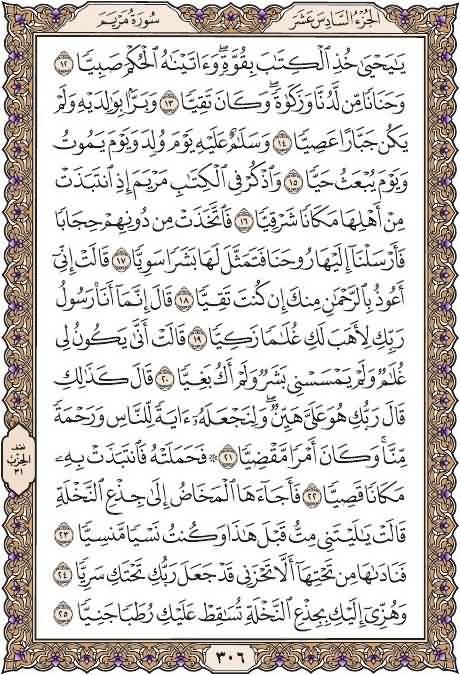 الجزء السادس عشر
سورة مريم
يَـٰيَحْيَىٰ خُذِ ٱلْكِتَـٰبَ بِقُوَّةٍۖ وَءَاتَيْنَـٰهُ ٱلْحُكْمَ صَبِيًّا ١٢
وَحَنَانًا مِّن لَّدُنَّا وَزَكَوٰةًۖ وَكَانَ تَقِيًّا ١٣ وَبَرًّۢا بِوَٰلِدَيْهِ وَلَمْ
يَكُن جَبَّارًا عَصِيًّا ١٤ وَسَلَـٰمٌ عَلَيْهِ يَوْمَ وُلِدَ وَيَوْمَ يَمُوتُ
وَيَوْمَ يُبْعَثُ حَيًّا ١٥ وَٱذْكُرْ فِى ٱلْكِتَـٰبِ مَرْيَمَ إِذِ ٱنتَبَذَتْ
مِنْ أَهْلِهَا مَكَانًا شَرْقِيًّا ١٦ فَٱتَّخَذَتْ مِن دُونِهِمْ حِجَابًا
فَأَرْسَلْنَآ إِلَيْهَا رُوحَنَا فَتَمَثَّلَ لَهَا بَشَرًا سَوِيًّا ١٧ قَالَتْ إِنِّىٓ
أَعُوذُ بِٱلرَّحْمَـٰنِ مِنكَ إِن كُنتَ تَقِيًّا ١٨ قَالَ إِنَّمَآ أَنَا۠ رَسُولُ
رَبِّكِ لِأَهَبَ لَكِ غُلَـٰمًا زَكِيًّا ١٩ قَالَتْ أَنَّىٰ يَكُونُ لِى
غُلَـٰمٌ وَلَمْ يَمْسَسْنِى بَشَرٌ وَلَمْ أَكُ بَغِيًّا ٢٠ قَالَ كَذَٰلِكِ
قَالَ رَبُّكِ هُوَ عَلَىَّ هَيِّنٌۖ وَلِنَجْعَلَهُۥٓ ءَايَةً لِّلنَّاسِ وَرَحْمَةً
مِّنَّاۚ وَكَانَ أَمْرًا مَّقْضِيًّا ٢١ ۞ فَحَمَلَتْهُ فَٱنتَبَذَتْ بِهِۦ
مَكَانًا قَصِيًّا ٢٢ فَأَجَآءَهَا ٱلْمَخَاضُ إِلَىٰ جِذْعِ ٱلنَّخْلَةِ
قَالَتْ يَـٰلَيْتَنِى مِتُّ قَبْلَ هَـٰذَا وَكُنتُ نَسْيًا مَّنسِيًّا ٢٣
فَنَادَىٰهَا مِن تَحْتِهَآ أَلَّا تَحْزَنِى قَدْ جَعَلَ رَبُّكِ تَحْتَكِ سَرِيًّا ٢٤
وَهُزِّىٓ إِلَيْكِ بِجِذْعِ ٱلنَّخْلَةِ تُسَـٰقِطْ عَلَيْكِ رُطَبًا جَنِيًّا ٢٥
نصف
الحزب
٣١
٣٠٦